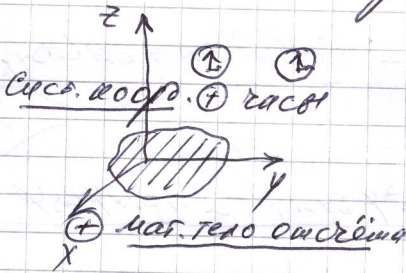 z
Сист. коорд. + часы
y
x + мат. тело отсчёта